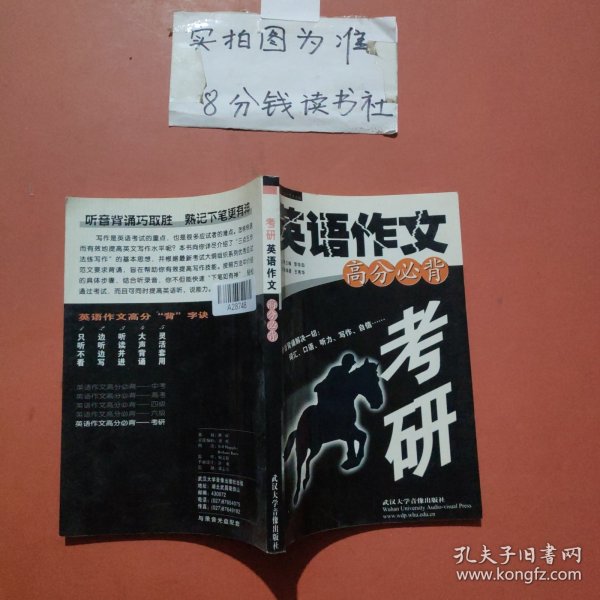 实拍图为准
8分钱读书社
听音背诵巧取胜 熟记下笔更有神
写作是英语考试的重点，也是很多应试者的难点。怎样快速
而有效地提高英文写作水平呢？本书向你详尽介绍了“三点五步
法练写作”的基本思想，并根据最新考试大纲组织系列优秀应试
范文要求背诵，旨在帮助你有效提高写作技能。按照方法中介绍
的具体步骤，结合听录音，你不但能快速“下笔如有神”，轻松
通过考试，而且可同时提高英语听、说能力。
A28748
英语作文高分“背”字诀
1 只听不看
2 边听边写
3 听读并进
4 大声背诵
5 灵活套用
英语作文高分必背——中考
英语作文高分必背——高考
英语作文高分必背——四级
英语作文高分必背——六级
英语作文高分必背——考研
武汉大学音像出版社出版
地址：湖北武昌珞珈山
邮编：430072
与录音光盘配套
考研 英语作文 高分必背
武汉大学音像出版社
英语作文
高分必背
考研
词汇、口语、听力、写作、自信……
武汉大学音像出版社
Wuhan University Audio-visual Press
www.wdp.whu.edu.cn
孔夫子旧书网
www.kongfz.com